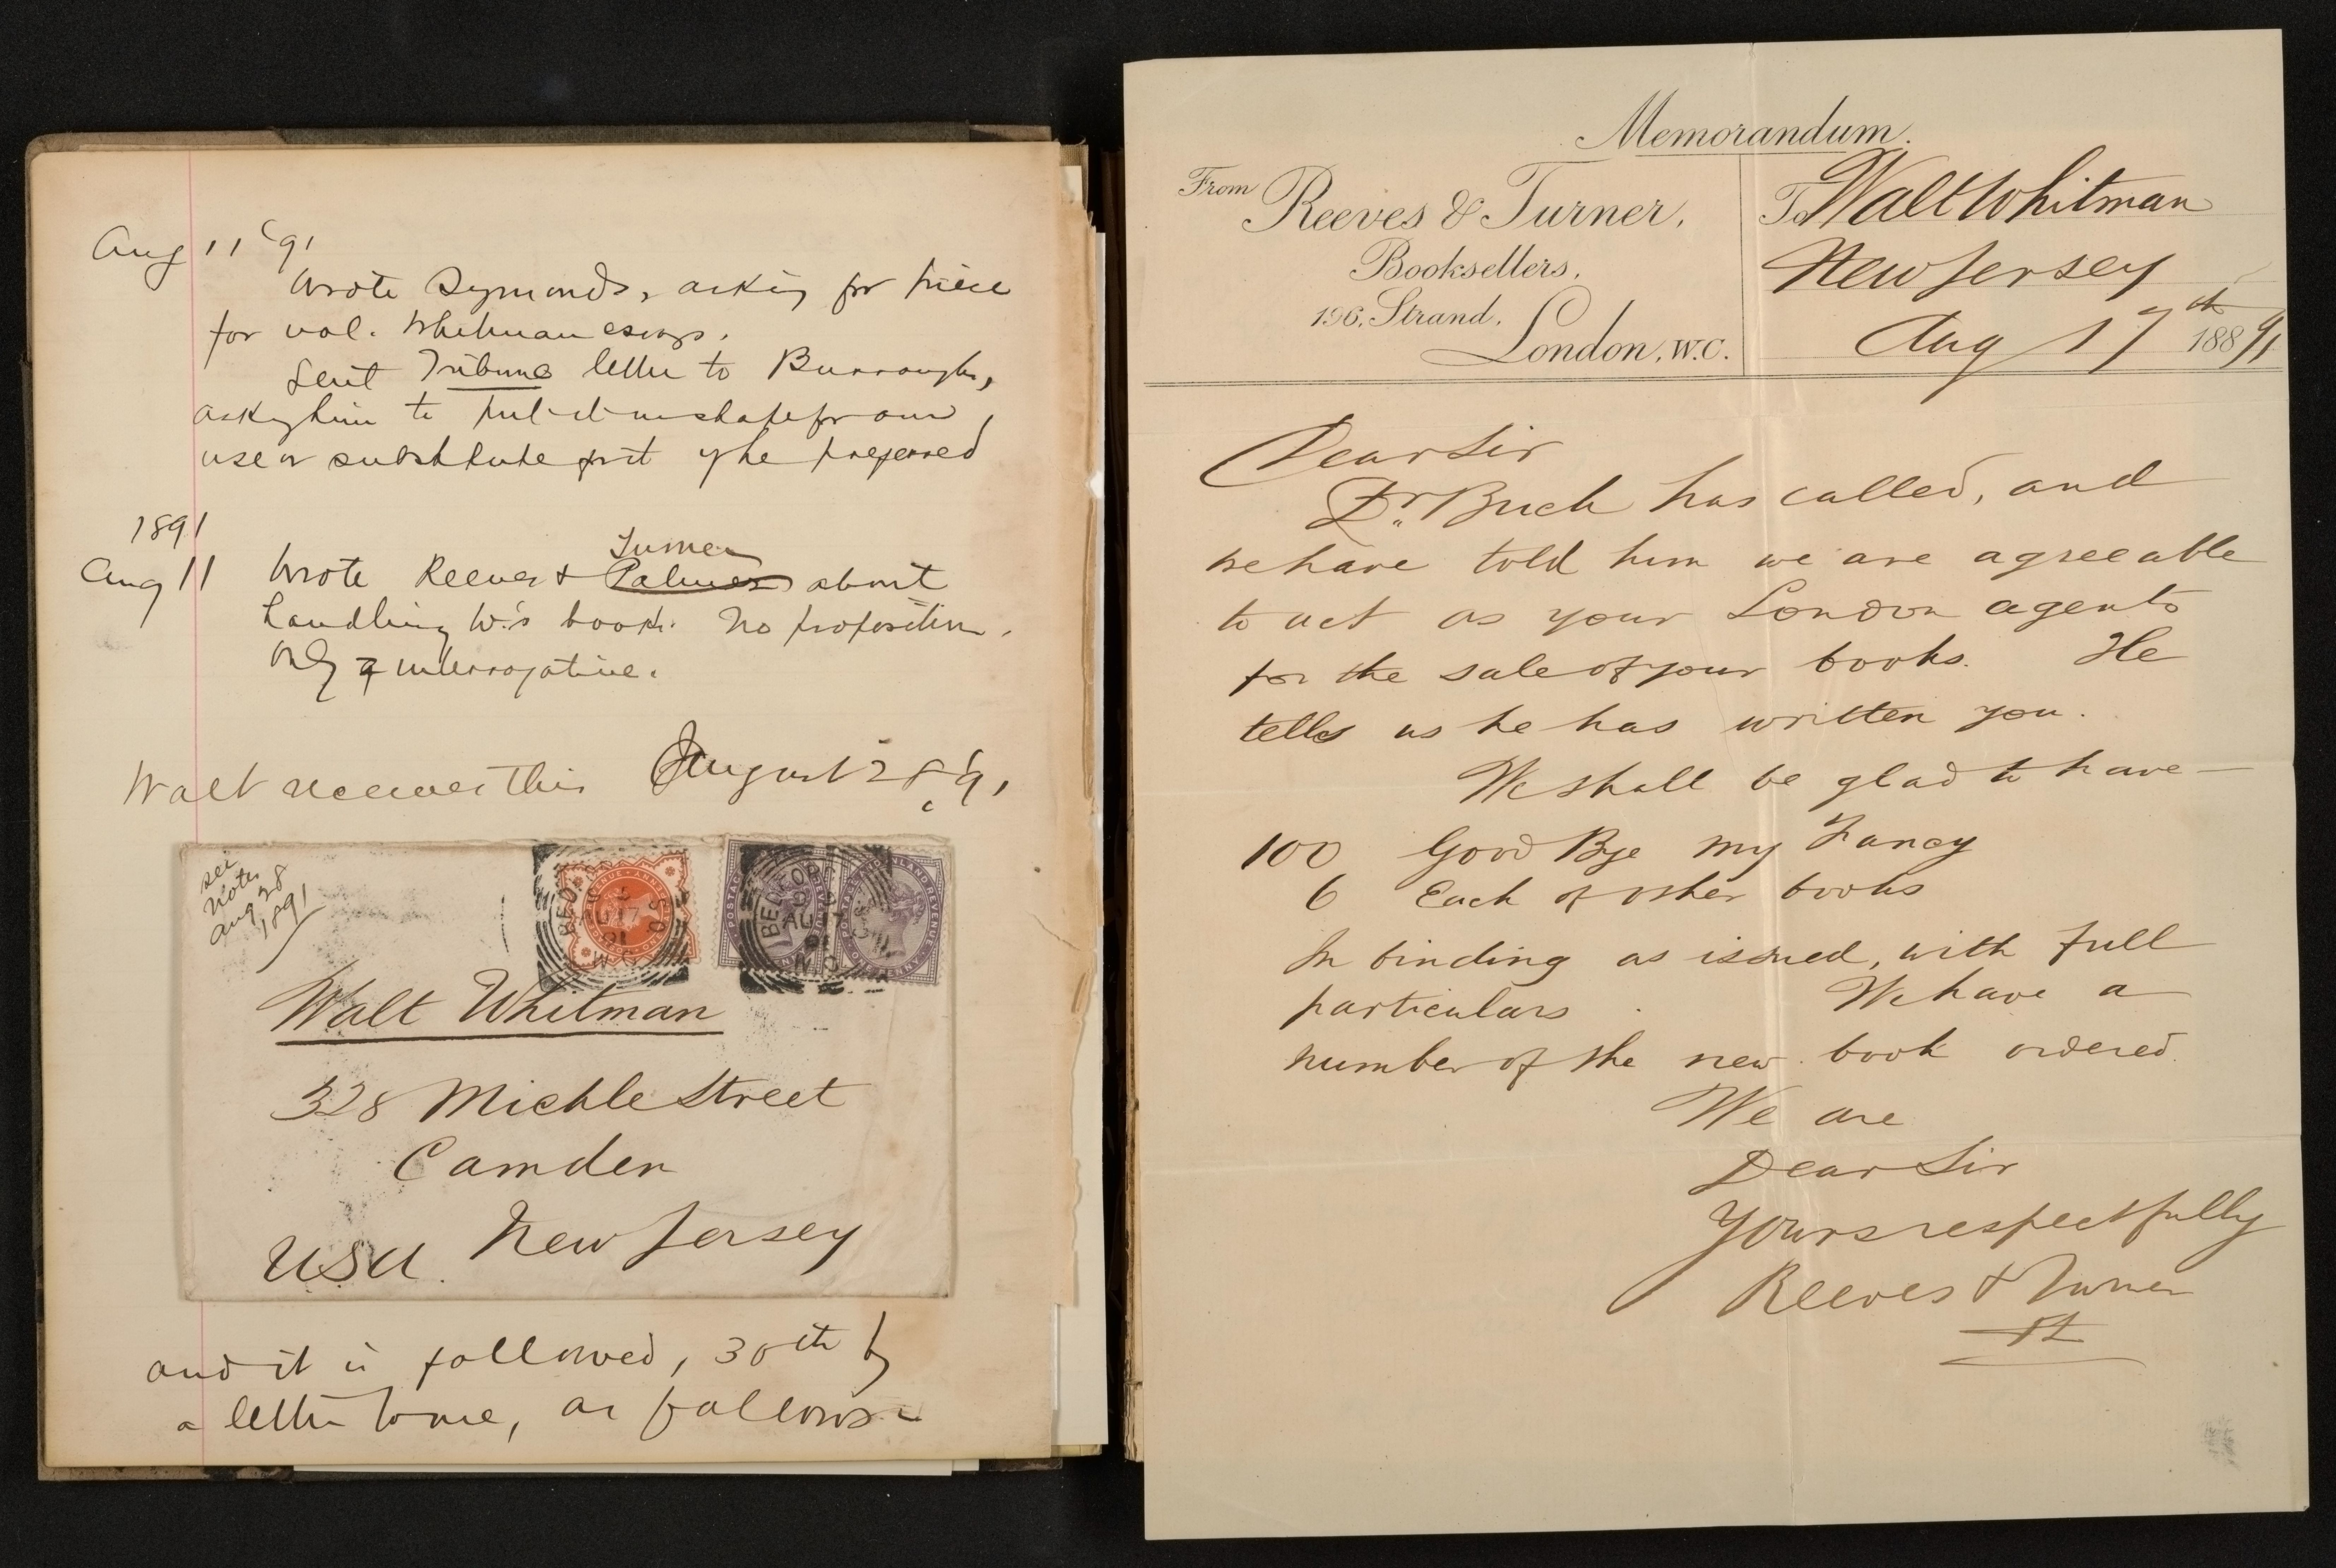 Aug 11 '91
Wrote Symonds, asking for piece
for vol. Whitman essays.
Sent Tribune letter to Burroughs,
asking him to put it in shape for our
use or substitute for it if he preferred
1891
Aug 11 Wrote Reeves & Palmer Turner about
handling W.'s books. No proposition.
Only interrogative.
Walt receives this August 28 '91
see
notes
Aug 28
1891
Walt Whitman
328 Mickle Street
Camden
New Jersey
USA.
and it is followed, 30th by
a letter to me, as follows
Memorandum.
From Reeves & Turner,
Booksellers,
196, Strand,
London, W.C.
To Walt Whitman
New Jersey
Aug 17th 1891
Dear Sir
Dr. Buck has called, and
we have told him we are agreeable
to act as your London agents
for the sale of your books. He
tells us he has written you.
We shall be glad to have —
100 Good Bye my Fancy
6 Each of other books
In binding as issued, with full
particulars. We have a
number of the new book ordered.
We are
Dear Sir
Yours respectfully
Reeves & Turner